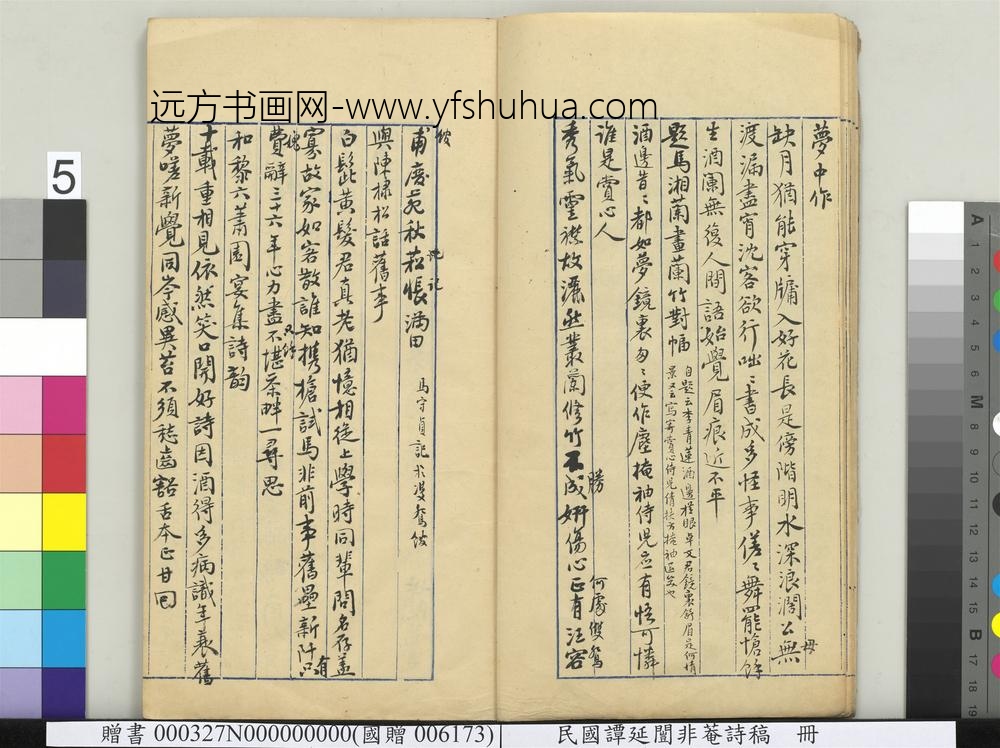 夢中作
缺月猶能穿牖入好花長是傍階明水深浪濶公無
渡漏盡宵沈客欲行咄咄書成多怪事傞傞舞罷愴餘
生酒闌無復人間語始覺眉痕近不平
題馬湘蘭畫蘭竹對幅
自題云李青蓮酒邊
酒邊昔昔都如夢鏡裏匆匆便作塵掩袖侍兒應有悟可憐
誰是賞心人
秀氣靈襟故瀟洒叢蘭修竹成妍傷心正有汪容
勝 何處雙鴛
甫廢苑秋菘悵滿田
馬守貞記於雙鴛館
與陳棣松話舊事
白髭黃髮君真老猶憶相從上學時同輩問名存蓋
寡故家如客散誰知携槍試馬非前事舊壘新阡只
有
費辭三十六年心力盡不堪茶畔一尋思
和黎六蕭園宴集詩韻
十載重相見依然笑口開好詩因酒得多病識年衰舊
夢嗟新覺同岑感異苔不須愁齒豁舌本正甘回
远方书画网-www.yfshuhua.com
5
A 1 2 3 4 5 6 7 M 8 9 10 11 12 13 14 15 B 17 18 19
贈書 000327N000000000(國贈 006173)
民國譚延闓非菴詩稿 冊